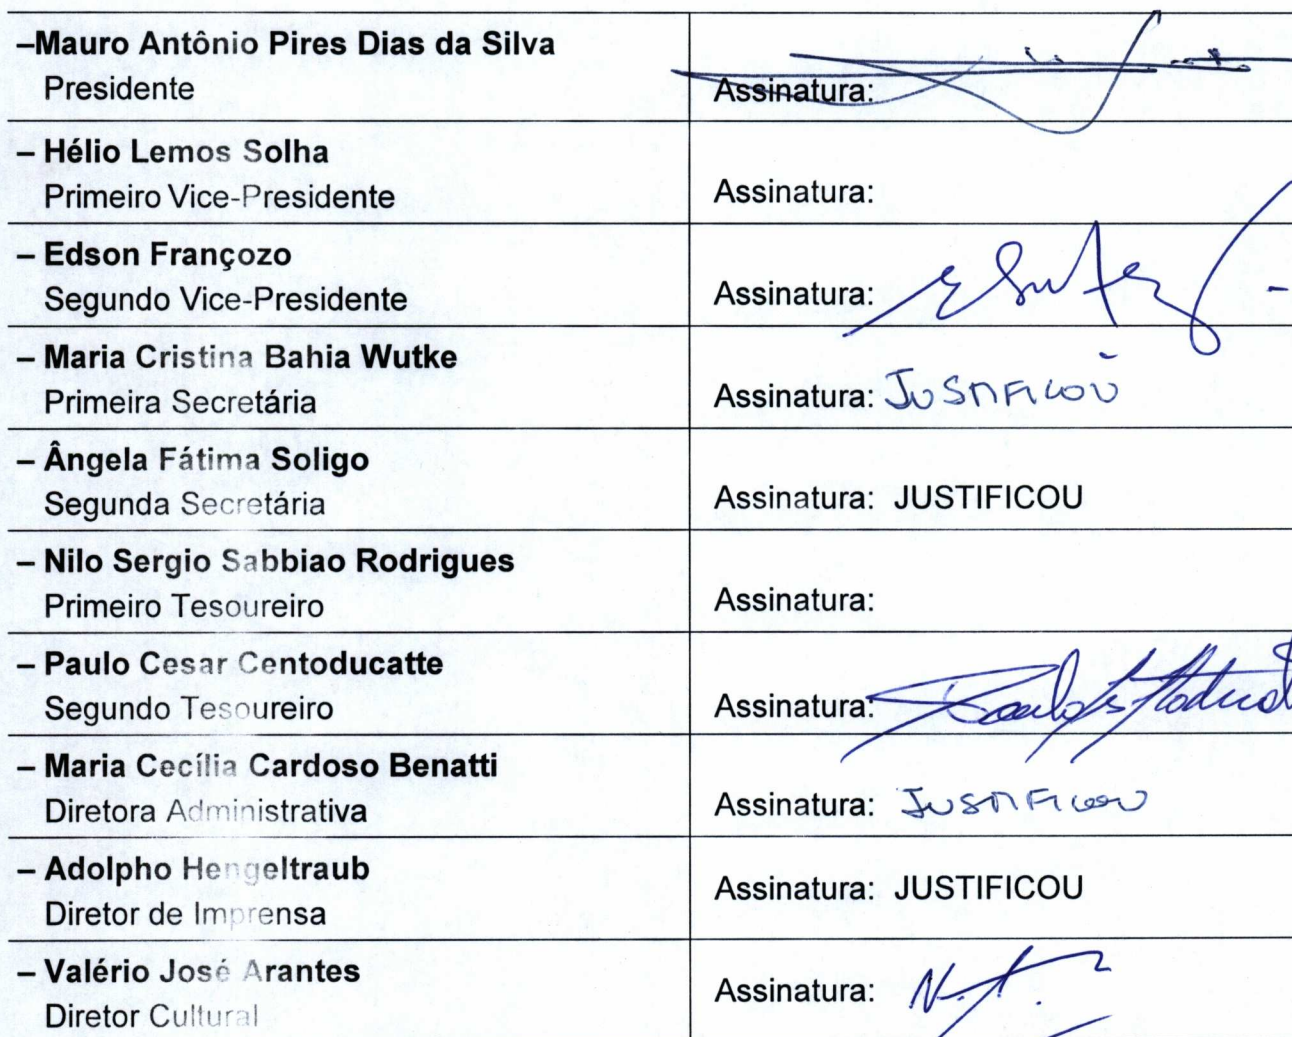 –Mauro Antônio Pires Dias da Silva
Presidente
Assinatura:
– Hélio Lemos Solha
Primeiro Vice-Presidente
Assinatura:
– Edson Françozo
Segundo Vice-Presidente
Assinatura:
– Maria Cristina Bahia Wutke
Primeira Secretária
Assinatura: JUSTIFICOU
– Ângela Fátima Soligo
Segunda Secretária
Assinatura: JUSTIFICOU
– Nilo Sergio Sabbiao Rodrigues
Primeiro Tesoureiro
Assinatura:
– Paulo Cesar Centoducatte
Segundo Tesoureiro
Assinatura:
– Maria Cecília Cardoso Benatti
Diretora Administrativa
Assinatura: JUSTIFICOU
– Adolpho Hengeltraub
Diretor de Imprensa
Assinatura: JUSTIFICOU
– Valério José Arantes
Diretor Cultural
Assinatura: